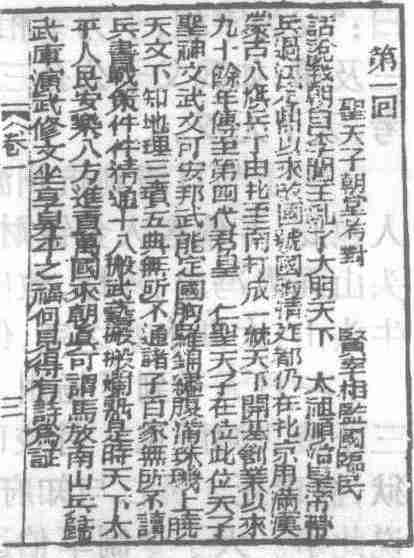 第一回
聖天子朝堂有對 賢宰相監國臨民
話說我朝自李闖王亂了大明天下 太祖順治皇帝帶
兵過江定鼎以來改國號國為清都仍在北京用滿漢
蒙古八旗兵丁由北至南打成一統天下開基創業以來
九十餘年傳至第四代君皇 仁聖天子在位此位天子
聖神文武文可安邦武能定國胸羅錦繡腹滿珠璣上曉
天文下知地理三墳五典無所不通諸子百家無所不讀
兵書戰策件件精通十八般武藝般般嫻熟是時天下太
平人民安樂八方進貢萬國來朝真可謂馬放南山兵歸
武庫演武修文坐享昇平之福何見得有詩為証
卷一
三